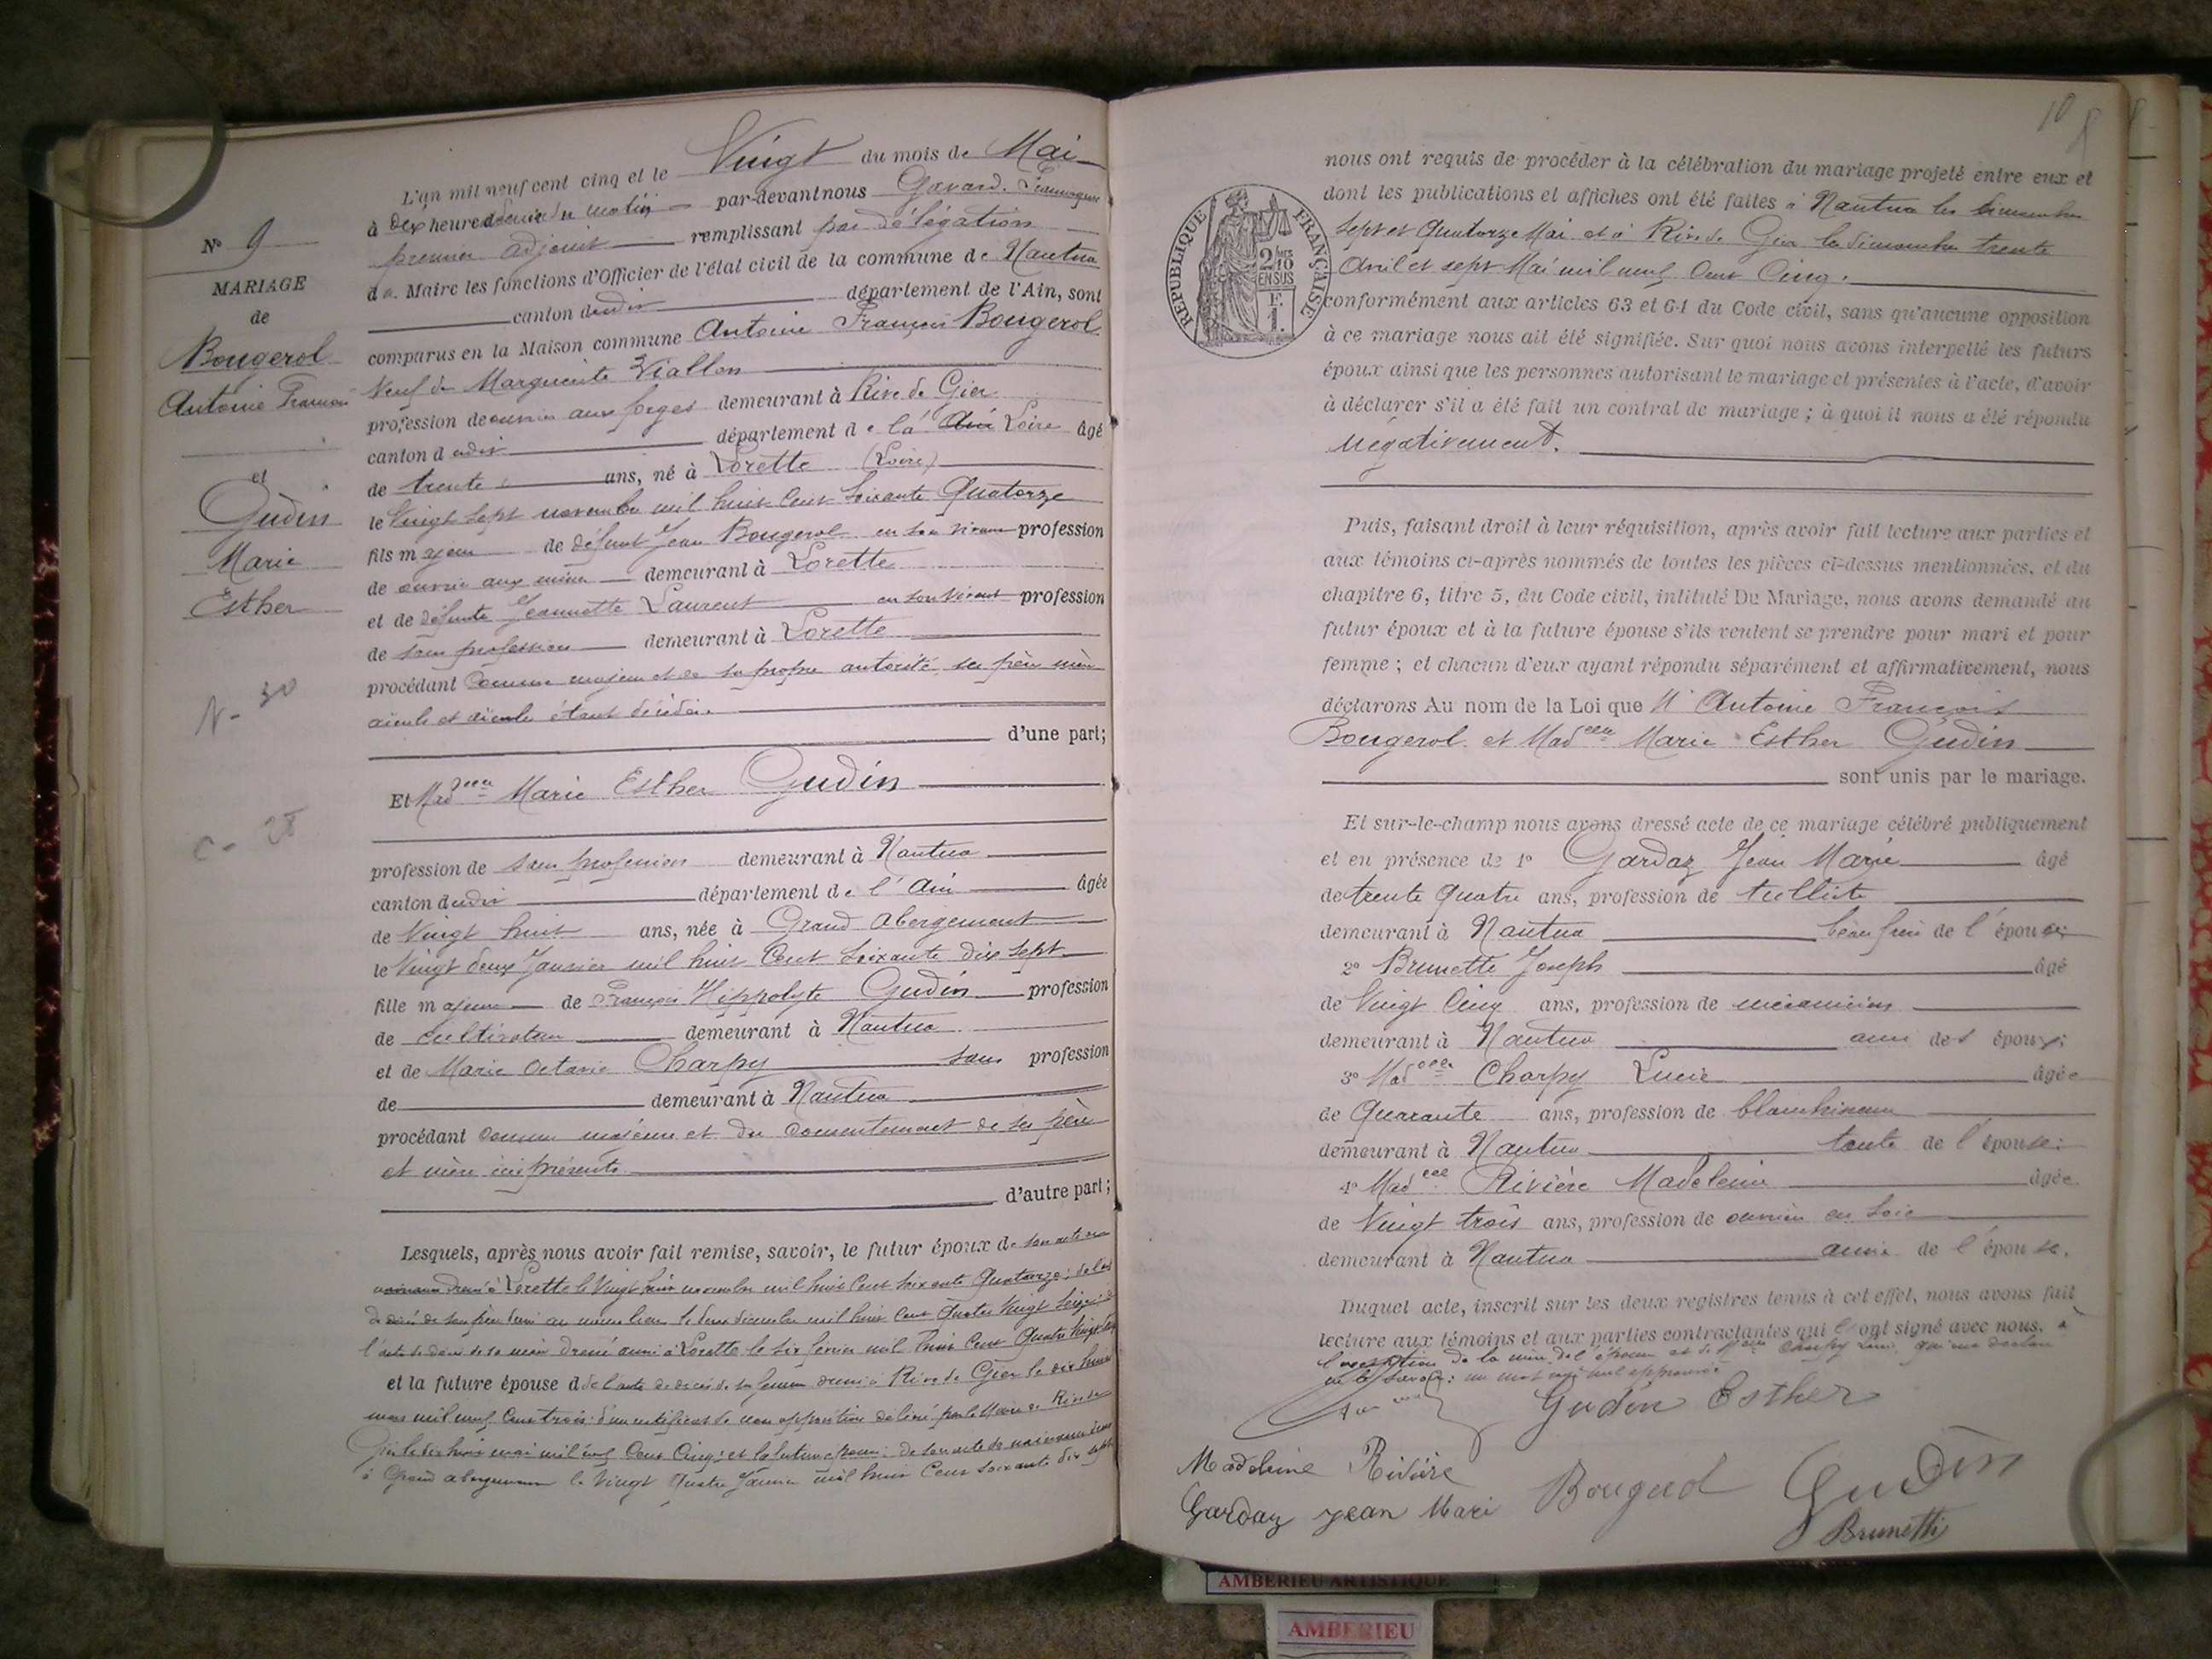 L'an mil neuf cent cinq et le Vingt du mois de Mai
à dix heures demie du matin par-devant nous Gavard
premier adjoint remplissant par délégation
du Maire les fonctions d'Officier de l'état civil de la commune de Nantua
canton dudit département de l'Ain, sont
comparus en la Maison commune Antoine François Bougerol
Veuf de Marguerite Viallon
profession de ouvrier aux forges demeurant à Rive de Gier
canton dudit département de la Ain Loire âgé
de trente ans, né à Lorette (Loire)
le Vingt sept novembre mil huit Cent Soixante Quatorze
fils majeur de défunt Jean Bougerol en son vivant profession
de ouvrier aux mines demeurant à Lorette
et de défunte Jeannette Laurent en son vivant profession
de sans profession demeurant à Lorette
procédant comme majeur et de sa propre autorité ses père mère
aïeuls et aïeules étant décédés.
d'une part;
Et Madelle Marie Esther Gudin
profession de sans profession demeurant à Nantua
canton dudit département de l'Ain âgée
de Vingt huit ans, née à Grand Abergement
le Vingt deux Janvier mil huit Cent Soixante dix sept
fille majeure de François Hippolyte Gudin profession
de cultivateur demeurant à Nantua
et de Marie Octavie Charpy sans profession
de demeurant à Nantua
procédant comme majeure et du consentement de ses père
et mère ici présents
d'autre part;
Lesquels, après nous avoir fait remise, savoir, le futur époux de son acte de
naissance dressé à Lorette le Vingt huit novembre mil huit Cent soixante Quatorze; de
décès de son père dressé au même lieu le deux décembre mil huit Cent Quatre Vingt Seize;
l'acte de décès de sa mère dressé aussi à Lorette le six février mil huit Cent Quatre Vingt
et la future épouse d de l'acte de décès de sa femme dressé à Rive de Gier le dix huit
mars mil neuf Cent trois; d'un certificat de non opposition délivré par le Maire de Rive de
Gier le dix huit mai mil neuf Cent Cinq; et la future épouse: de son acte de naissance dressé
à Grand abergement le Vingt Quatre Janvier mil huit Cent soixante dix sept
No 9
MARIAGE
de
Bougerol
Antoine François
et
Gudin
Marie
Esther
N - 30
C - 28
10
nous ont requis de procéder à la célébration du mariage projeté entre eux et
dont les publications et affiches ont été faites à Nantua les dimanches
sept et Quatorze Mai et à Rive de Gier les dimanches trente
Avril et sept Mai mil neuf Cent Cinq.
conformément aux articles 63 et 64 du Code civil, sans qu'aucune opposition
à ce mariage nous ait été signifiée. Sur quoi nous avons interpellé les futurs
époux ainsi que les personnes autorisant le mariage et présentes à l'acte, d'avoir
à déclarer s'il a été fait un contrat de mariage; à quoi il nous a été répondu
négativement.
RÉPUBLIQUE FRANÇAISE
2/10
EN SUS
F.
1.
Puis, faisant droit à leur réquisition, après avoir fait lecture aux parties et
aux témoins ci-après nommés de toutes les pièces ci-dessus mentionnées, et du
chapitre 6, titre 5, du Code civil, intitulé Du Mariage, nous avons demandé au
futur époux et à la future épouse s'ils veulent se prendre pour mari et pour
femme; et chacun d'eux ayant répondu séparément et affirmativement, nous
déclarons Au nom de la Loi que Mr Antoine François
Bougerol et Madelle Marie Esther Gudin
sont unis par le mariage.
Et sur-le-champ nous avons dressé acte de ce mariage célébré publiquement
et en présence de 1o Gardaz Jean Marie âgé
de trente Quatre ans, profession de tulliste
demeurant à Nantua beau frère de l'épouse
2o Brunette Joseph âgé
de Vingt Cinq ans, profession de mécanicien
demeurant à Nantua ami des époux;
3o Madelle Charpy Lucie âgée
de Quarante ans, profession de blanchisseuse
demeurant à Nantua tante de l'épouse;
4o Madelle Rivière Madeleine âgée
de Vingt trois ans, profession de ouvrière en soie
demeurant à Nantua amie de l'épouse.
Duquel acte, inscrit sur les deux registres tenus à cet effet, nous avons fait
lecture aux témoins et aux parties contractantes qui l'ont signé avec nous. à
l'exception de la mère de l'épouse et de Charpy Lucie qui ont déclaré
ne le savoir: un mot rayé nul approuvé
Gudin Esther
Madeleine Rivière
Bougerol Gudin
Gardaz jean Mari
Brunetti
AMBERIEU ARTISTIQUE
AMBERIEU